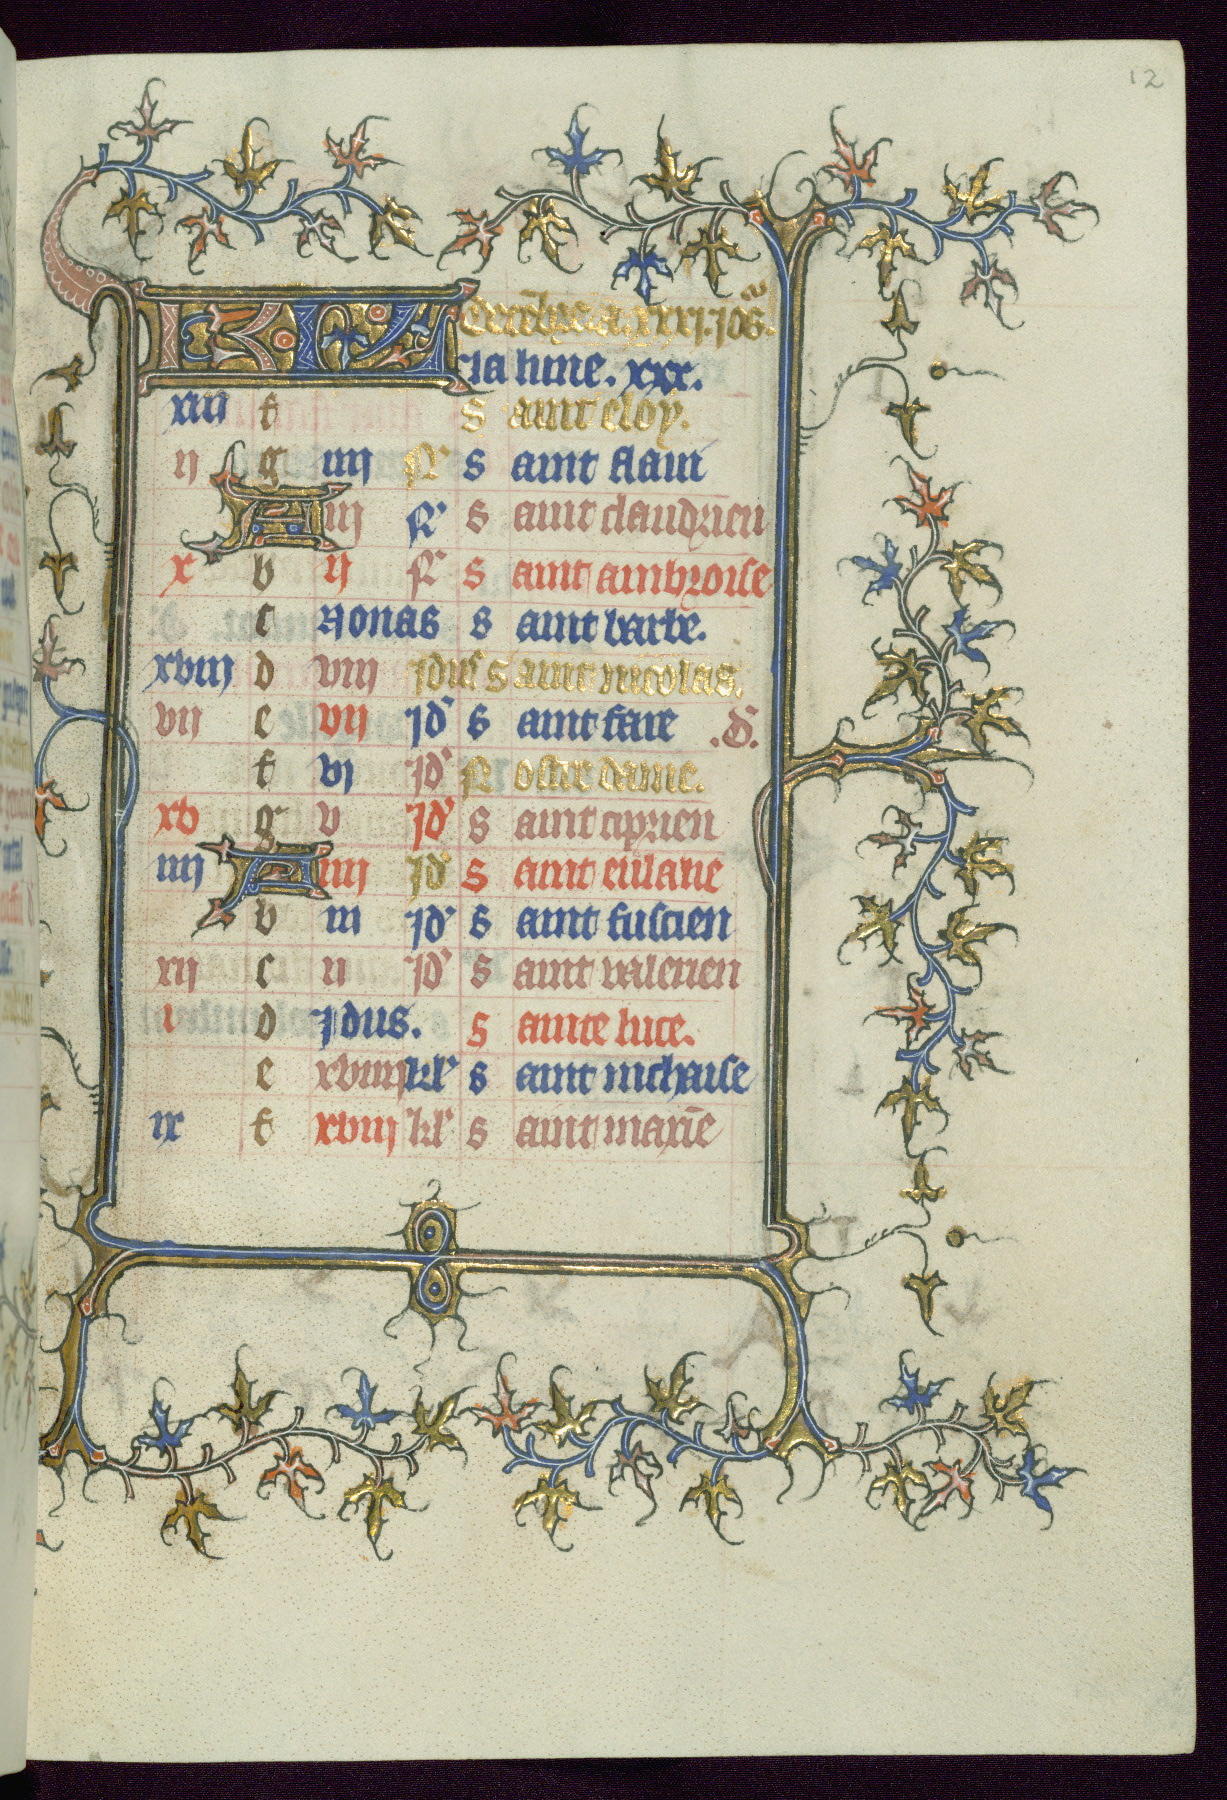 12
KL Decēbre a xxxj. iors.
la lune. xxx.
xiii f s aint eloy.
ij g iiij N s aint flain
A iij N s aint claudrien
x b ij N s aint ambroise
c Nonas s aint barbe.
xviij d viij Idus s aint nicolas.
vij e vij Id s aint fare .D.
f vj Id N ostre dame.
xv g v Id s aint ciprien
iiij A iiij Id s aint eulalie
b iii Id s aint fuscien
xij c ii Id s aint valerien
i d Idus. s ainte luce.
e xviiij kl s aint nichaise
ix f xviij kl s aint maxiē